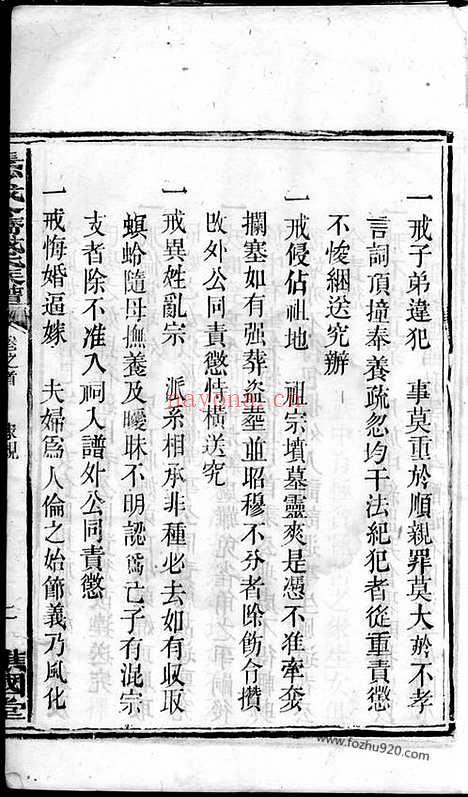 一戒子弟違犯　事莫重於順親罪莫大於不孝
言詞頂撞奉養疏忽均干法紀犯者從重責懲
不悛綑送究辦
一戒侵佔祖地　祖宗墳墓靈爽是憑不准牽套
攔塞如有强葬盜塟並昭穆不分者除飭令攢
改外公同責懲恃橫送究
一戒異姓亂宗　派系相承非種必去如有収取
螟蛉隨母撫養及曖昧不明認爲亡子有混宗
支者除不准入祠入譜外公同責懲
一戒悔婚逼嫁　夫婦爲人倫之始節義乃風化
卷之首
家規
二
nayona.cn
www.fozhu920.com